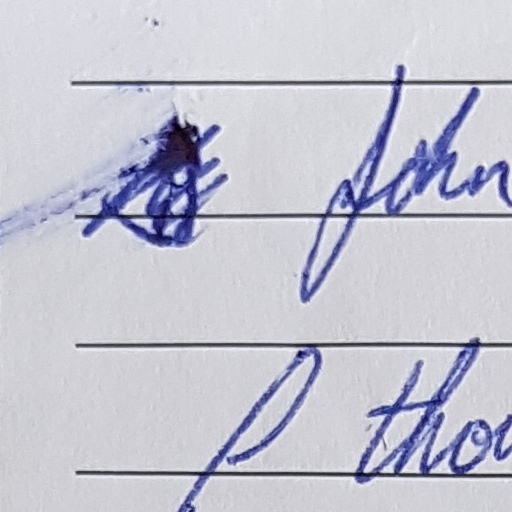 John
I thou